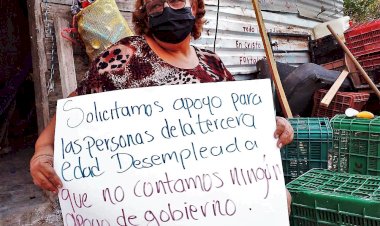 Solicitamos apoyo para
las personas de la tercera
edad Desempleada
que no contamos ningún
apoyo de gobierno.